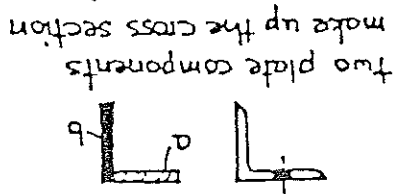 a
b
two plate components
make up the cross section